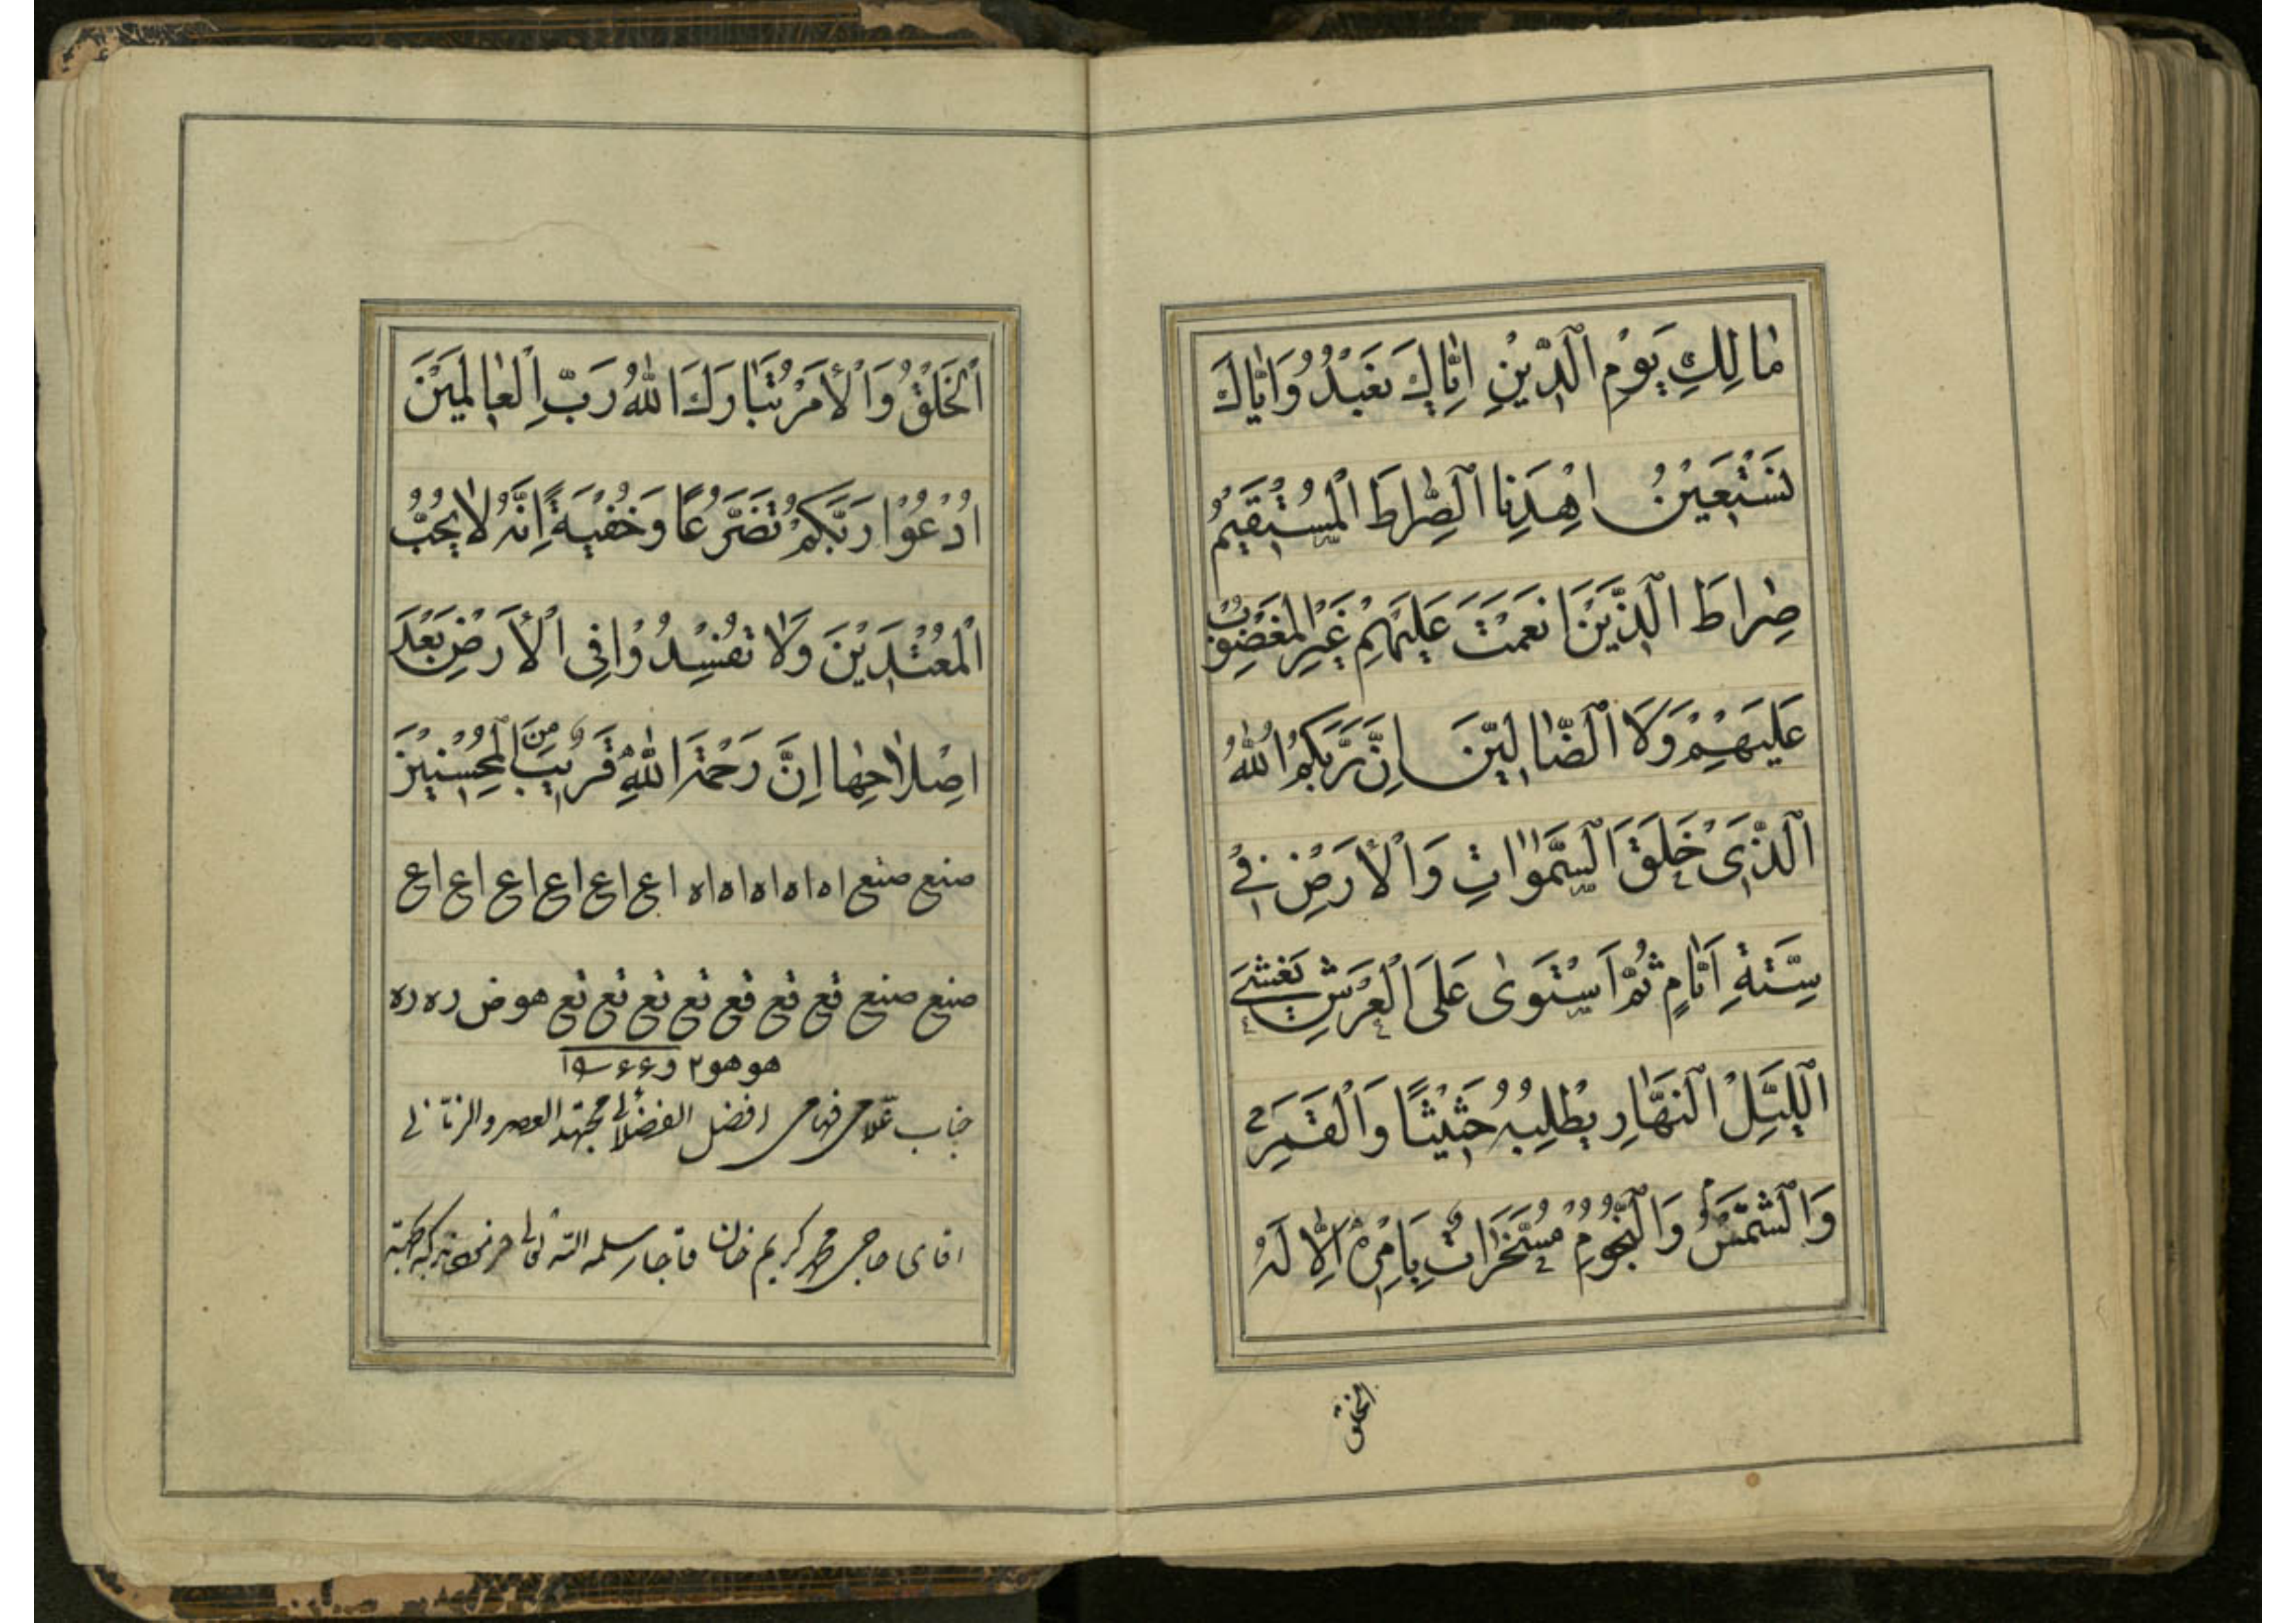 مٰا لِكِ يَوْمِ اَلدّيْنِ اِيّٰاكَ نَعْبُدُ وَاِيّٰاكَ
نَسْتَعيْنُ اِهْدِنا اَلصِّرٰاطَ الْمُسْتَقيْمُ
صِرٰاطَ اَلَّذيْنَ اَنْعَمْتَ عَلَيْهِمْ غَيْرِ الْمَغْضُوْبِ
عَلَيْهِمْ وَلَا اَلضّٰالّيْنَ اِنَّ رَبَّكُمُ اللّٰهُ
اَلَّذىْ خَلَقَ اَلسَّمٰوٰاتِ وَالْأَرَضْ فِىْ
سِتَّةِ اَيّٰامٍ ثُمَّ اَسْتَوىٰ عَلَى الْعَرْشِ يَغْشىَ
اَللَّيْلِ اَلنَّهٰارِ يْطْلِبُهُ حَثيْثًا وَالْقَمَرَ
وَالْشَمْسُ وَالنُّجُوْمِ مُسَخَّرَاتُ بِاَمْرِهِ اِلّٰا لَهُ
الخلق
اَلْخَلْقُ وَالْأَمَرْ تَبٰارَكَ اللّٰهُ رَبِّ الْعٰالَميَنَ
اُدْعُوْا رَبَّكُمْ تَضَرُّعًا وَخُفْيَةً اِنَّهُ لاٰ يُحُبُّ
الْمُعْتَديْنَ وَلاٰ تُفْسِدُوْا فِى الْأَرَضْ بَعْدَ
اِصْلاٰحِهٰا اِنَّ رَحْمَةَ اللّٰهِ قَريْبٌ مِنَ الْمُحْسِنيْنَ
صنع صنع اه اه اه اه اه اع اع اع اع اع اع
صنع صنع قع قع قع قع قع قع قع هو ض ره ره
هو هو ٢
جناب علامى فهامى افضل الفضلائى مجتهد العصر و الزمانى
اقاى حاجى محمد كريم خان قاجار سلمه الله تعالى